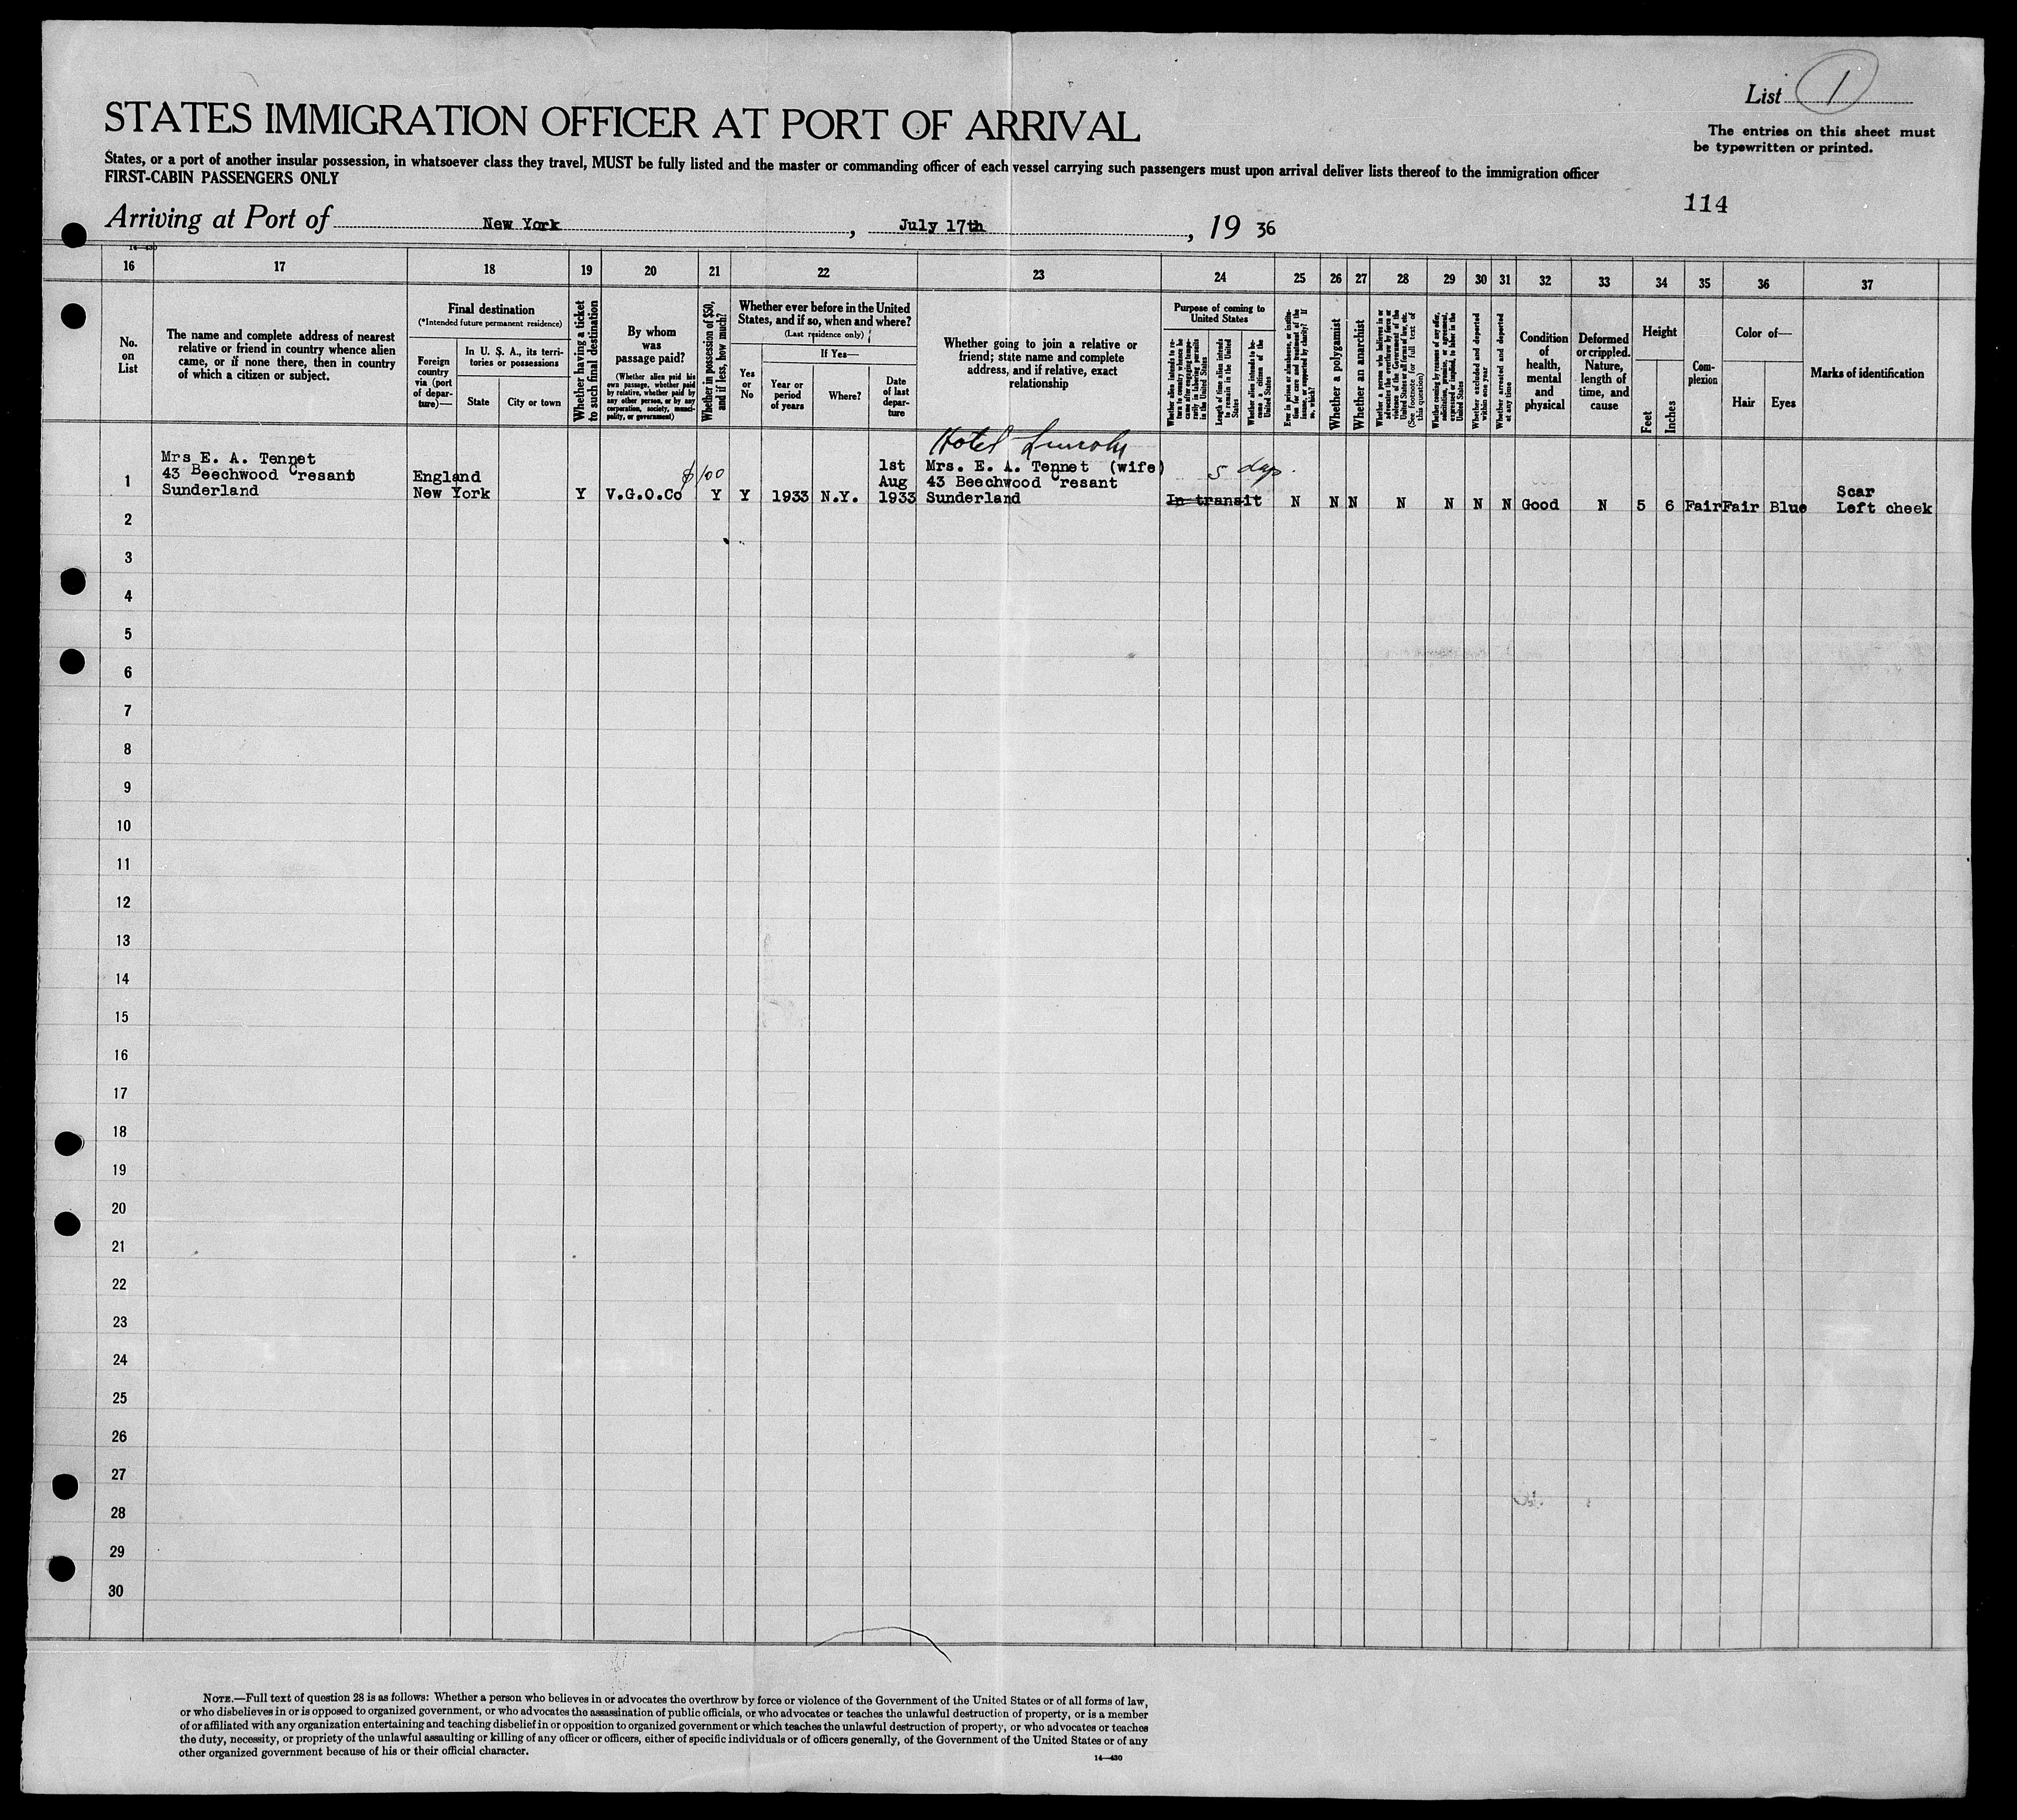 List 1
The entries on this sheet must
be typewritten or printed.
STATES IMMIGRATION OFFICER AT PORT OF ARRIVAL
States, or a port of another insular possession, in whatsoever class they travel, MUST be fully listed and the master or commanding officer of each vessel carrying such passengers must upon arrival deliver lists thereof to the immigration officer
FIRST-CABIN PASSENGERS ONLY
114
Arriving at Port of New York, July 17th, 19 36
14—430
16 17 18 19 20 21 22 23 24 25 26 27 28 29 30 31 32 33 34 35 36 37
No.
on
List
The name and complete address of nearest
relative or friend in country whence alien
came, or if none there, then in country
of which a citizen or subject.
Final destination
(*Intended future permanent residence)
Foreign
country
via (port
of depar-
ture)—
In U. S. A., its terri-
tories or possessions
State
City or town
Whether having a ticket
to such final destination
By whom
was
passage paid?
(Whether alien paid his
own passage, whether paid
by relative, whether paid by
any other person, or by any
corporation, society, munici-
pality, or government)
Whether in possession of $50,
and if less, how much?
Whether ever before in the United
States, and if so, when and where?
(Last residence only)
Yes
or
No
If Yes—
Year or
period
of years
Where?
Date
of last
depar-
ture
Whether going to join a relative or
friend; state name and complete
address, and if relative, exact
relationship
Purpose of coming to
United States
Whether alien intends to re-
turn to country whence he
came after engaging tempo-
rarily in laboring pursuits
in the United States
Length of time alien intends
to remain in the United
States
Whether alien intends to be-
come a citizen of the
United States
Ever in prison or almshouse, or institu-
tion for care and treatment of the
insane, or supported by charity? If
so, which?
Whether a polygamist
Whether an anarchist
Whether a person who believes in or
advocates the overthrow by force or
violence of the Government of the
United States or all forms of law, etc.
(See footnote for full text of
this question)
Whether coming by reasons of any offer,
solicitation, promise, or agreement,
expressed or implied, to labor in the
United States
Whether excluded and deported
within one year
Whether arrested and deported
at any time
Condition
of
health,
mental
and
physical
Deformed
or crippled.
Nature,
length of
time, and
cause
Height
Feet
Inches
Com-
plexion
Color of—
Hair
Eyes
Marks of identification
Hotel Lincoln
1 Mrs E. A. Tennet
43 Beechwood Cresant
Sunderland
England
New York
Y
V.G.O.Co
$100
Y
Y
1933
N.Y.
1st
Aug
1933
Mrs. E. A. Tennet (wife)
43 Beechwood Cresant
Sunderland
5 days.
In transit
N N N N N N N Good N 5 6 Fair Fair Blue
Scar
Left cheek
2
3
4
5
6
7
8
9
10
11
12
13
14
15
16
17
18
19
20
21
22
23
24
25
26
27
28
29
30
NOTE.—Full text of question 28 is as follows: Whether a person who believes in or advocates the overthrow by force or violence of the Government of the United States or of all forms of law,
or who disbelieves in or is opposed to organized government, or who advocates the assassination of public officials, or who advocates or teaches the unlawful destruction of property, or is a member
of or affiliated with any organization entertaining and teaching disbelief in or opposition to organized government or which teaches the unlawful destruction of property, or who advocates or teaches
the duty, necessity, or propriety of the unlawful assaulting or killing of any officer or officers, either of specific individuals or of officers generally, of the Government of the United States or of any
other organized government because of his or their official character.
14—430